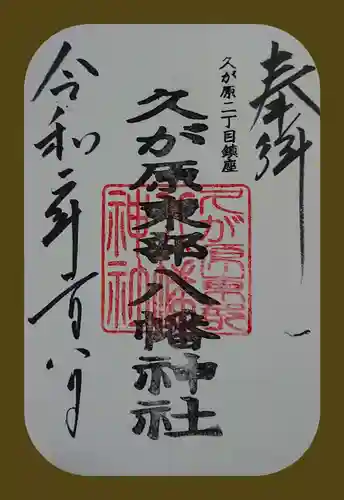 奉拝
久が原二丁目鎮座
久が原東部八幡神社
久が原東部
八幡
神社
令和二年